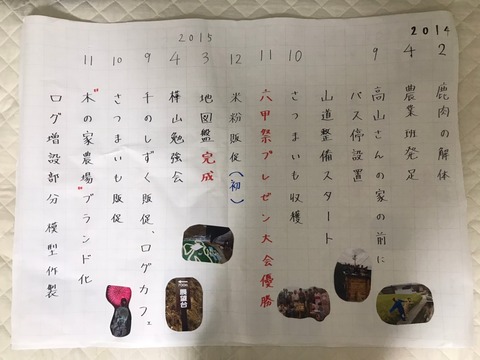 2014
2
鹿肉の解体
4
農業班発足
9
高山さんの家の前に
バス停設置
山道整備スタート
10
さつまいも収穫
11
六甲祭プレゼン大会優勝
12
米粉販促(初)
2015
3
地図盤完成
4
樺山勉強会
9
千のしずく販促、ログカフェ
10
さつまいも販促
11
"木の家農場"ブランド化
ログ増設部分 模型作製
展望台